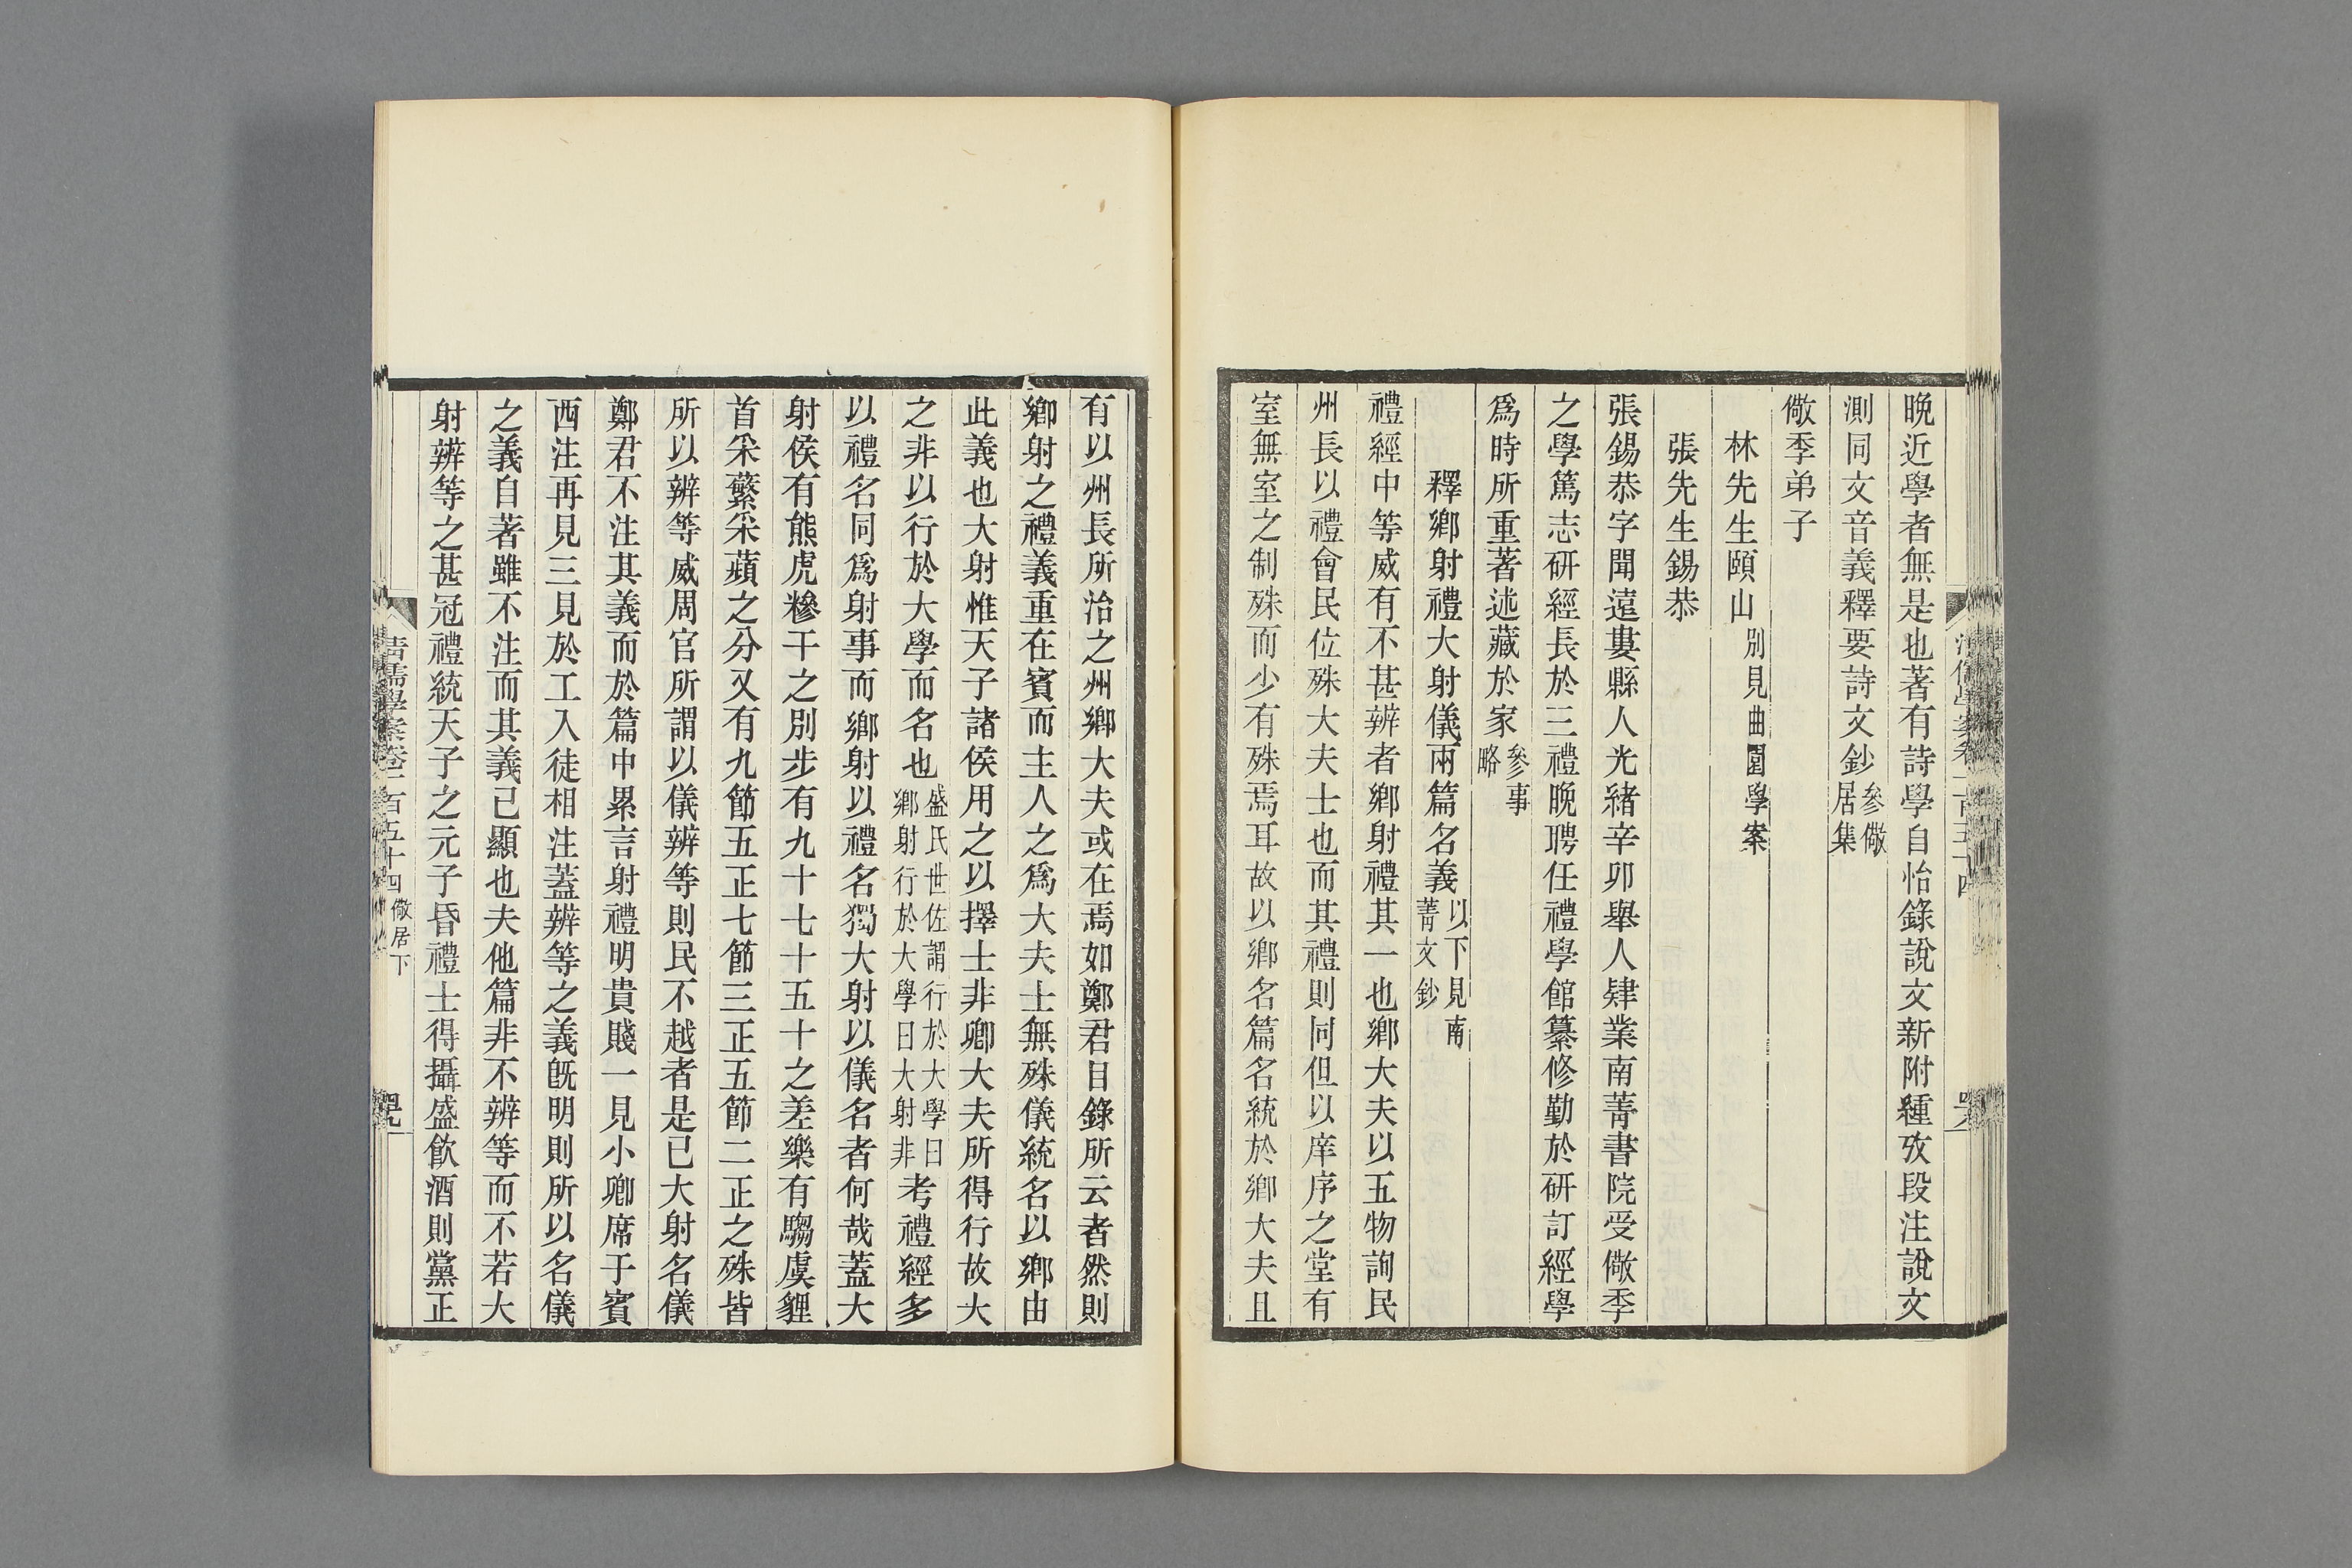 晚近學者無是也著有詩學自怡錄說文新附緟攷段注說文
測同文音義釋要詩文鈔參儆居集
儆季弟子
林先生頤山別見曲園學案
張先生錫恭
張錫恭字聞遠婁縣人光緒辛卯舉人肄業南菁書院受儆季
之學篤志研經長於三禮晚聘任禮學館纂修勤於研訂經學
爲時所重著述藏於家參事略
釋鄉射禮大射儀兩篇名義以下見南菁文鈔
禮經中等威有不甚辨者鄉射禮其一也鄉大夫以五物詢民
州長以禮會民位殊大夫士也而其禮則同但以庠序之堂有
室無室之制殊而少有殊焉耳故以鄉名篇名統於鄉大夫且
有以州長所治之州鄉大夫或在焉如鄭君目錄所云者然則
鄉射之禮義重在賓而主人之爲大夫士無殊儀統名以鄉由
此義也大射惟天子諸侯用之以擇士非卿大夫所得行故大
之非以行於大學而名也盛氏世佐謂行於大學曰鄉射行於大學曰大射非考禮經多
以禮名同爲射事而鄉射以禮名獨大射以儀名者何哉蓋大
射侯有熊虎糝干之別步有九十七十五十之差樂有騶虞貍
首采蘩采蘋之分又有九節五正七節三正五節二正之殊皆
所以辨等威周官所謂以儀辨等則民不越者是已大射名儀
鄭君不注其義而於篇中累言射禮明貴賤一見小卿席于賓
西注再見三見於工入徒相注蓋辨等之義旣明則所以名儀
之義自著雖不注而其義已顯也夫他篇非不辨等而不若大
射辨等之甚冠禮統天子之元子昏禮士得攝盛飮酒則黨正
清儒學案卷一百五十四 儆居下